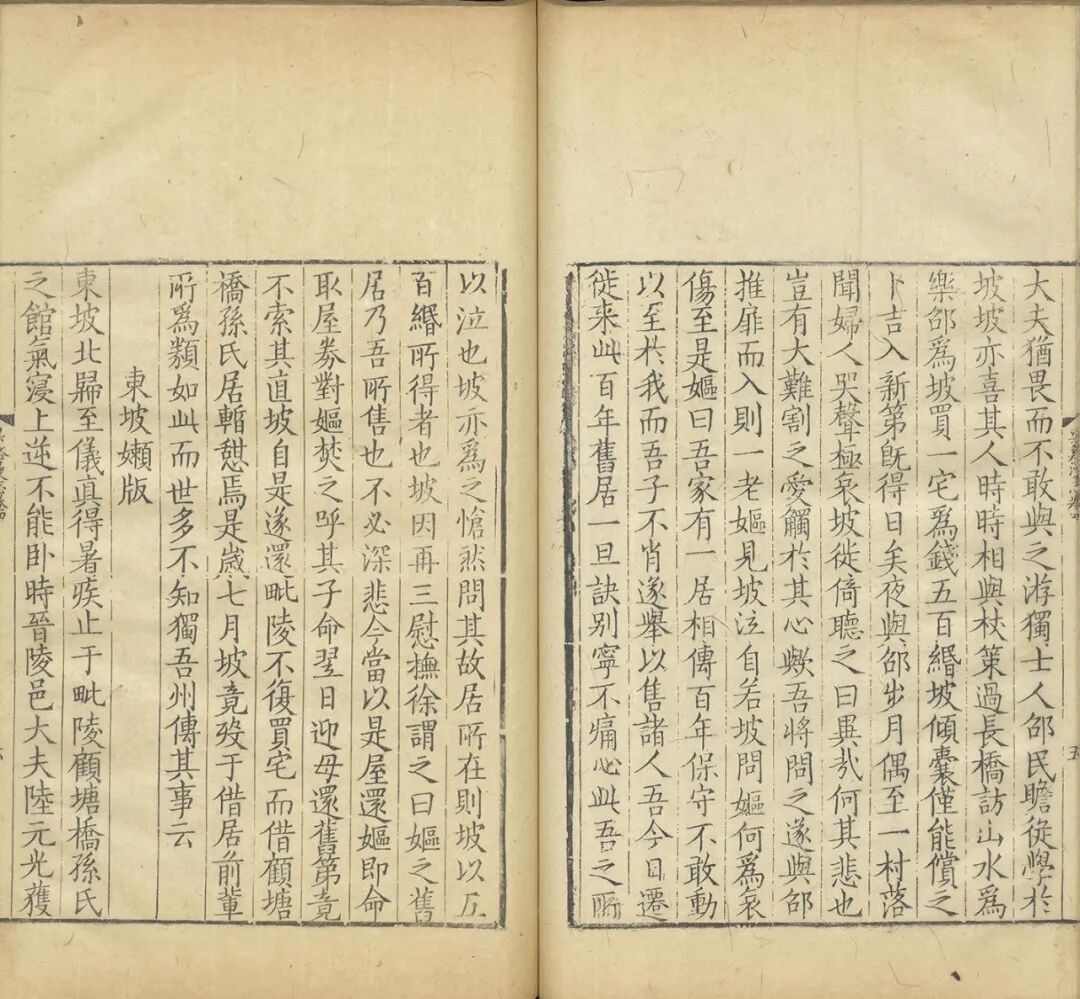 大夫猶畏而不敢與之游獨士人邵民瞻從學於
坡坡亦喜其人時時相與杖策過長橋訪山水爲
樂邵爲坡買一宅爲錢五百緡坡傾囊僅能償之
卜吉入新第旣得日矣夜與邵步月偶至一村落
聞婦人哭聲極哀坡徙倚聽之曰異哉何其悲也
豈有大難割之愛觸於其心歟吾將問之遂與邵
推扉而入則一老嫗見坡泣自若坡問嫗何爲哀
傷至是嫗曰吾家有一居相傳百年保守不敢動
以至於我而吾子不肖遂舉以售諸人吾今日遷
徙來此百年舊居一旦訣别寧不痛心此吾之所
以泣也坡亦爲之愴然問其故居所在則坡以五
百緡所得者也坡因再三慰撫徐謂之曰嫗之舊
居乃吾所售也不必深悲今當以是屋還嫗即命
取屋劵對嫗焚之呼其子命翌日迎母還舊第竟
不索其直坡自是遂還毗陵不復買宅而借顧塘
橋孫氏居暫憩焉是歲七月坡竟歿于借居前輩
所爲類如此而世多不知獨吾州傳其事云
東坡嬾版
東坡北歸至儀眞得暑疾止于毗陵顧塘橋孫氏
之館氣寖上逆不能卧時晉陵邑大夫陸元光獲